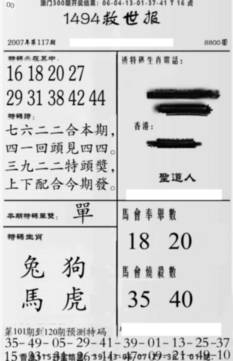 澳门300期开奖结果：06-04-13-01-37-41 T 16 虎
1494救世报
2007年第117期
8800期
特碼不在其中：
16 18 20 27
29 31 38 42 44
特碼詩：
七六二二合本期，
四一回頭見四四。
三九二二特頭獎，
上下配合今期發。
本期特碼單雙：單
特碼生肖
兔 狗
馬 虎
供特碼生肖電話：
香港：
聖道人
馬會奉舉數
18 20
馬會燒殺數
35 40
第101期到120期预测特码
35-49-05-29-41-39-01-33-25-37